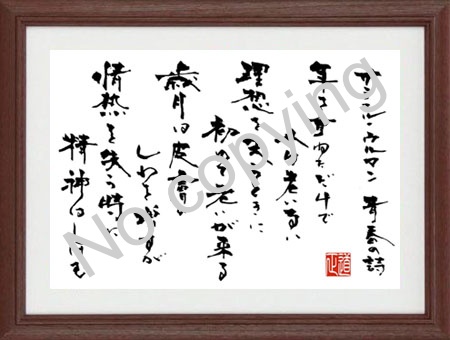 サミエル・ウルマン 青春の詩
年を重ねただけで
人は老いない
理想を失うときに
初めて老いが来る
歳月は皮膚の
しわを増すが
情熱を失う時に
精神はしぼむ
No copying